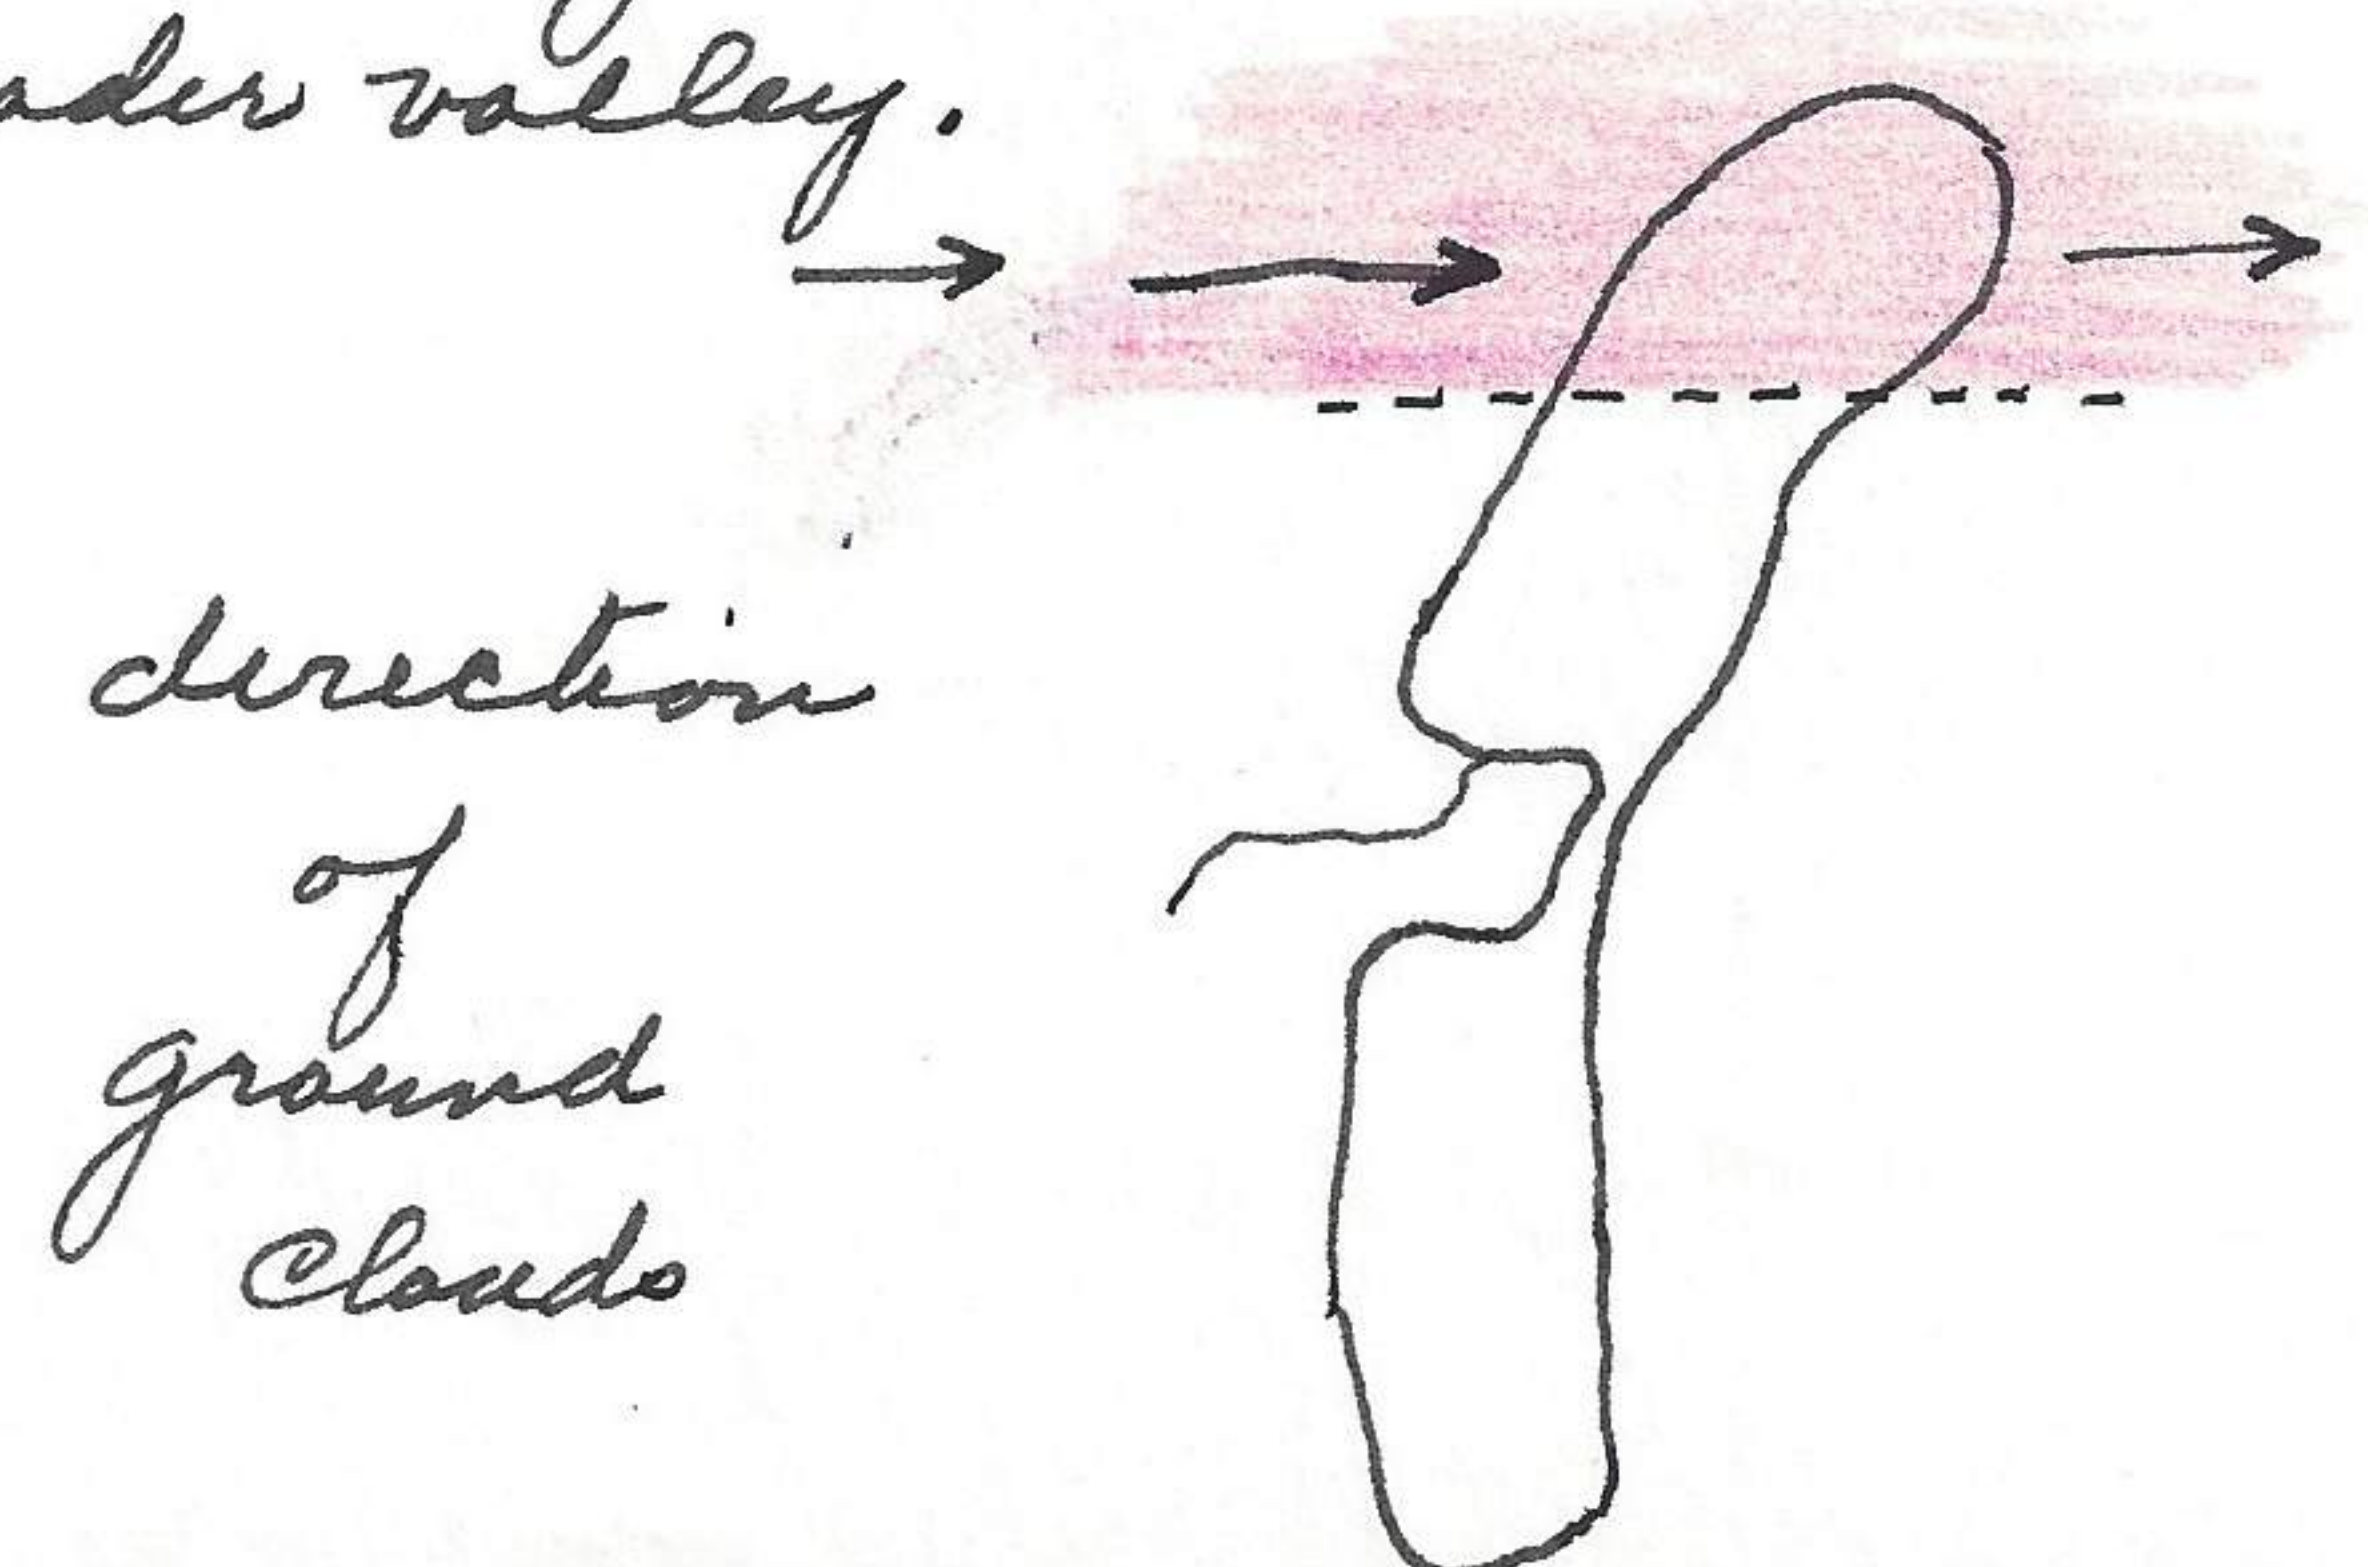 valley.
direction
of
ground
clouds